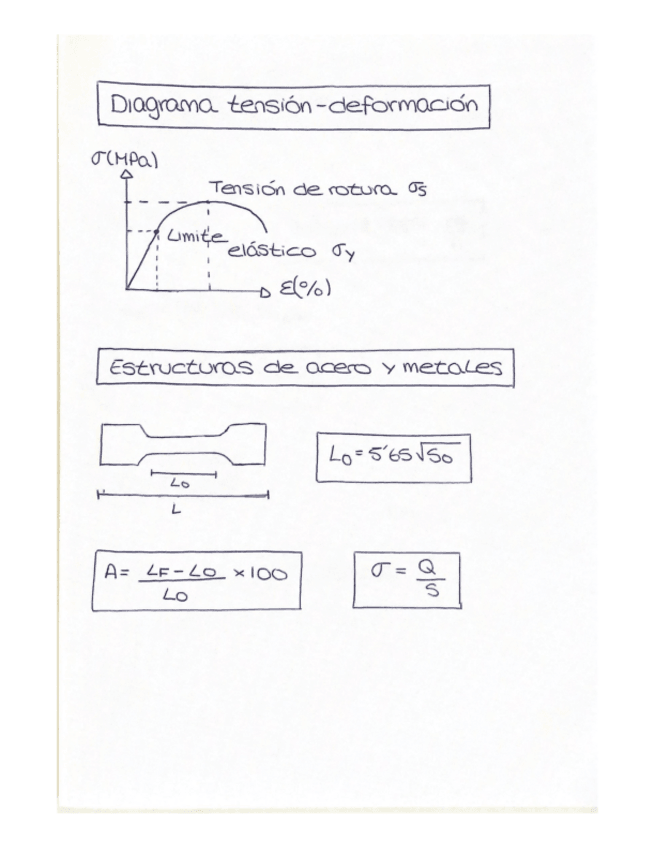 Diagrama tensión-deformación
σ(MPa)
Tensión de rotura σs
Limite
elástico σy
ε(%)
Estructuras de acero y metales
Lo = 5'65√So
Lo
L
A = LF - LO / LO × 100
σ = Q / S